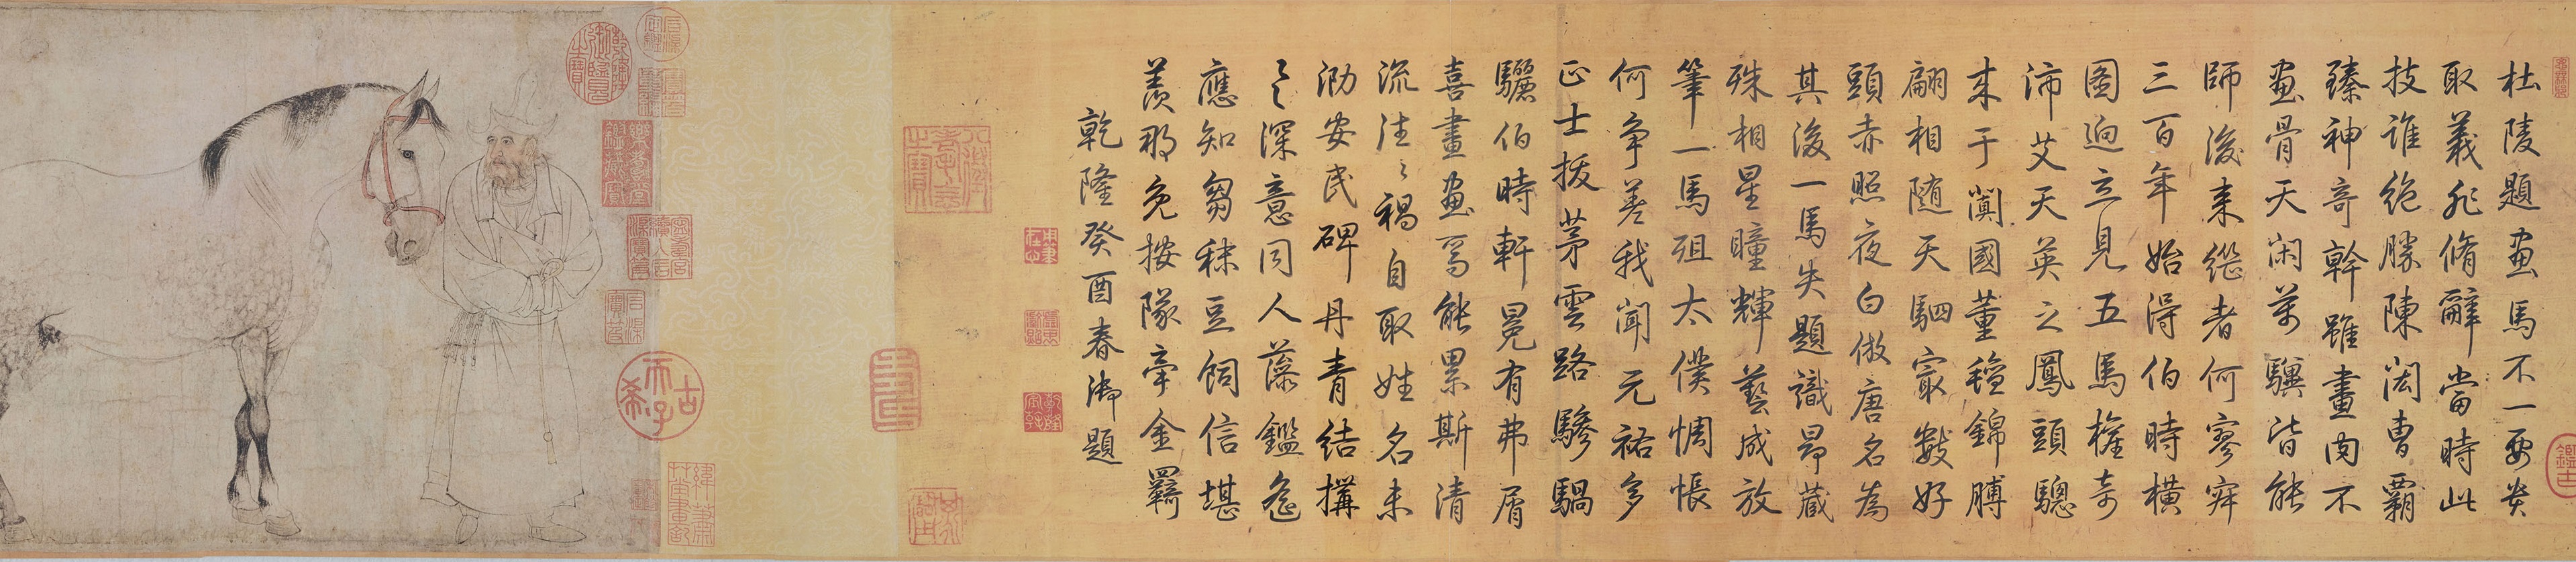 杜陵題画馬不一要
取義非脩辭當時此
技誰絶勝陳閎曹霸
臻神奇幹雖畫肉不
画骨天閑萬驥皆能
師後来繼者何寥寂
三百年始得伯時横
圖迥立見五馬權奇
沛艾天英之鳳頭驄
来于闐國董氊錦膊
翩相随天駟㝡數好
頭赤照夜白倣唐名為
其後一馬失題識昂藏
殊相星瞳輝藝成放
筆一馬殂太僕惆悵
何爭差我聞元祐多
正士拔茅雲路驂騧
驪伯時軒冕有弗屑
喜畫画焉能累斯清
流往々禍自取姓名未
泐安民碑丹青結搆
深意同人藻鑑
應知芻秣豆飼信堪
羨那免按隊牽金羈
乾隆癸酉春御題
八徵耄念之寶
乾隆御覽之寶
古希天子